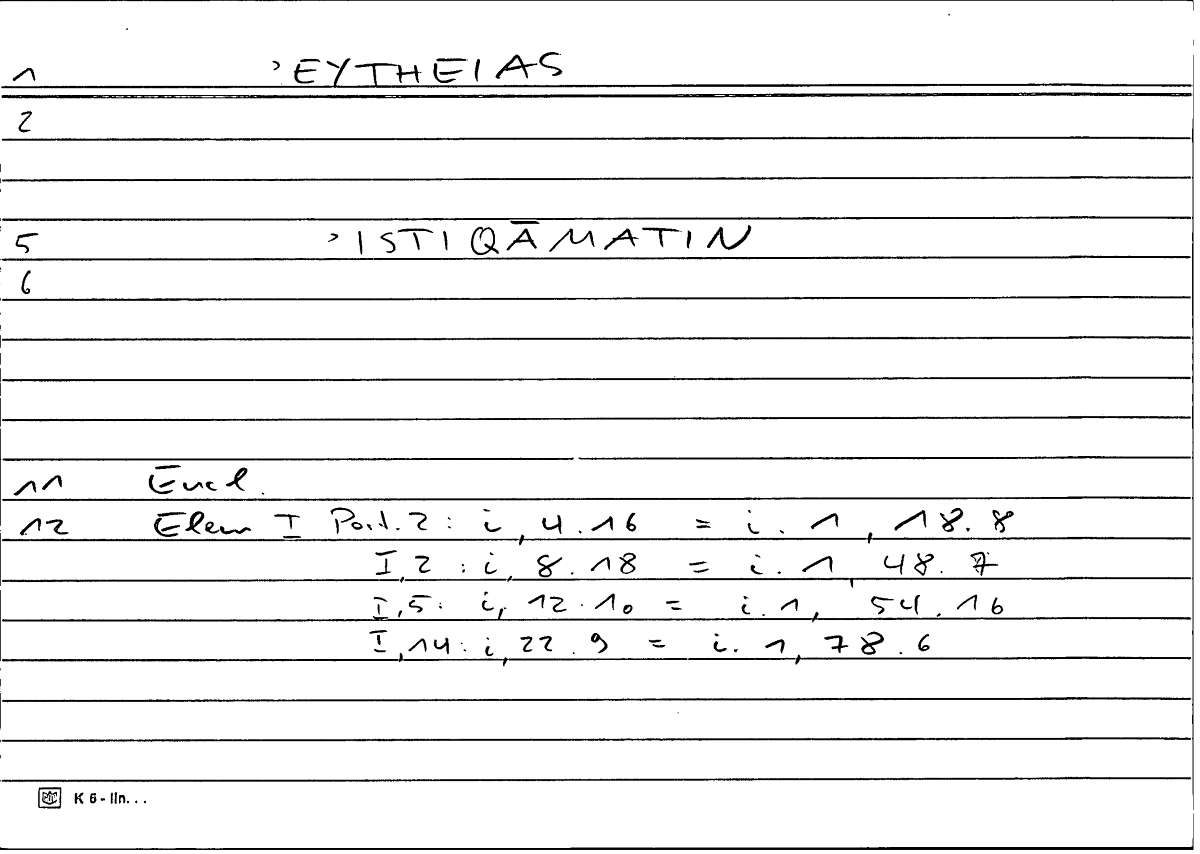 1 ʾEYTHEIAS
2
5 ʾISTIQĀMATIN
6
11 Eucl.
12 Elem I Post. 2 : i, 4.16 = i. 1, 18.8
I, 2 : i, 8.18 = i. 1, 48.7
I, 5 : i, 12.10 = i. 1, 54.16
I, 14 : i, 22.9 = i. 1, 78.6
K 6 - lin...